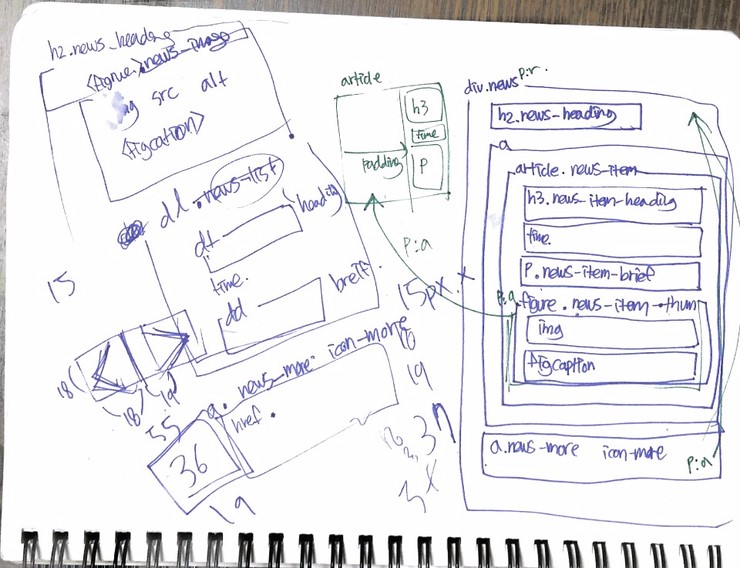 h2.news_heading
<figure>.news_image
src alt
<figcation>
dl.news-list
heading
dt
time.
dd
breif.
15
18
18
19
a. news_more icon-more
href.
55
36
19
article
h3
time
padding
P
P:a
15px.x
18
19
3n
3x
div.news P:r.
h2.news-heading
a
article.news-item
h3.news-item-heading
time.
P.news-item-brief
P:a figure.news-item-thum
img
figcaption
a.news-more icon-more
P:a